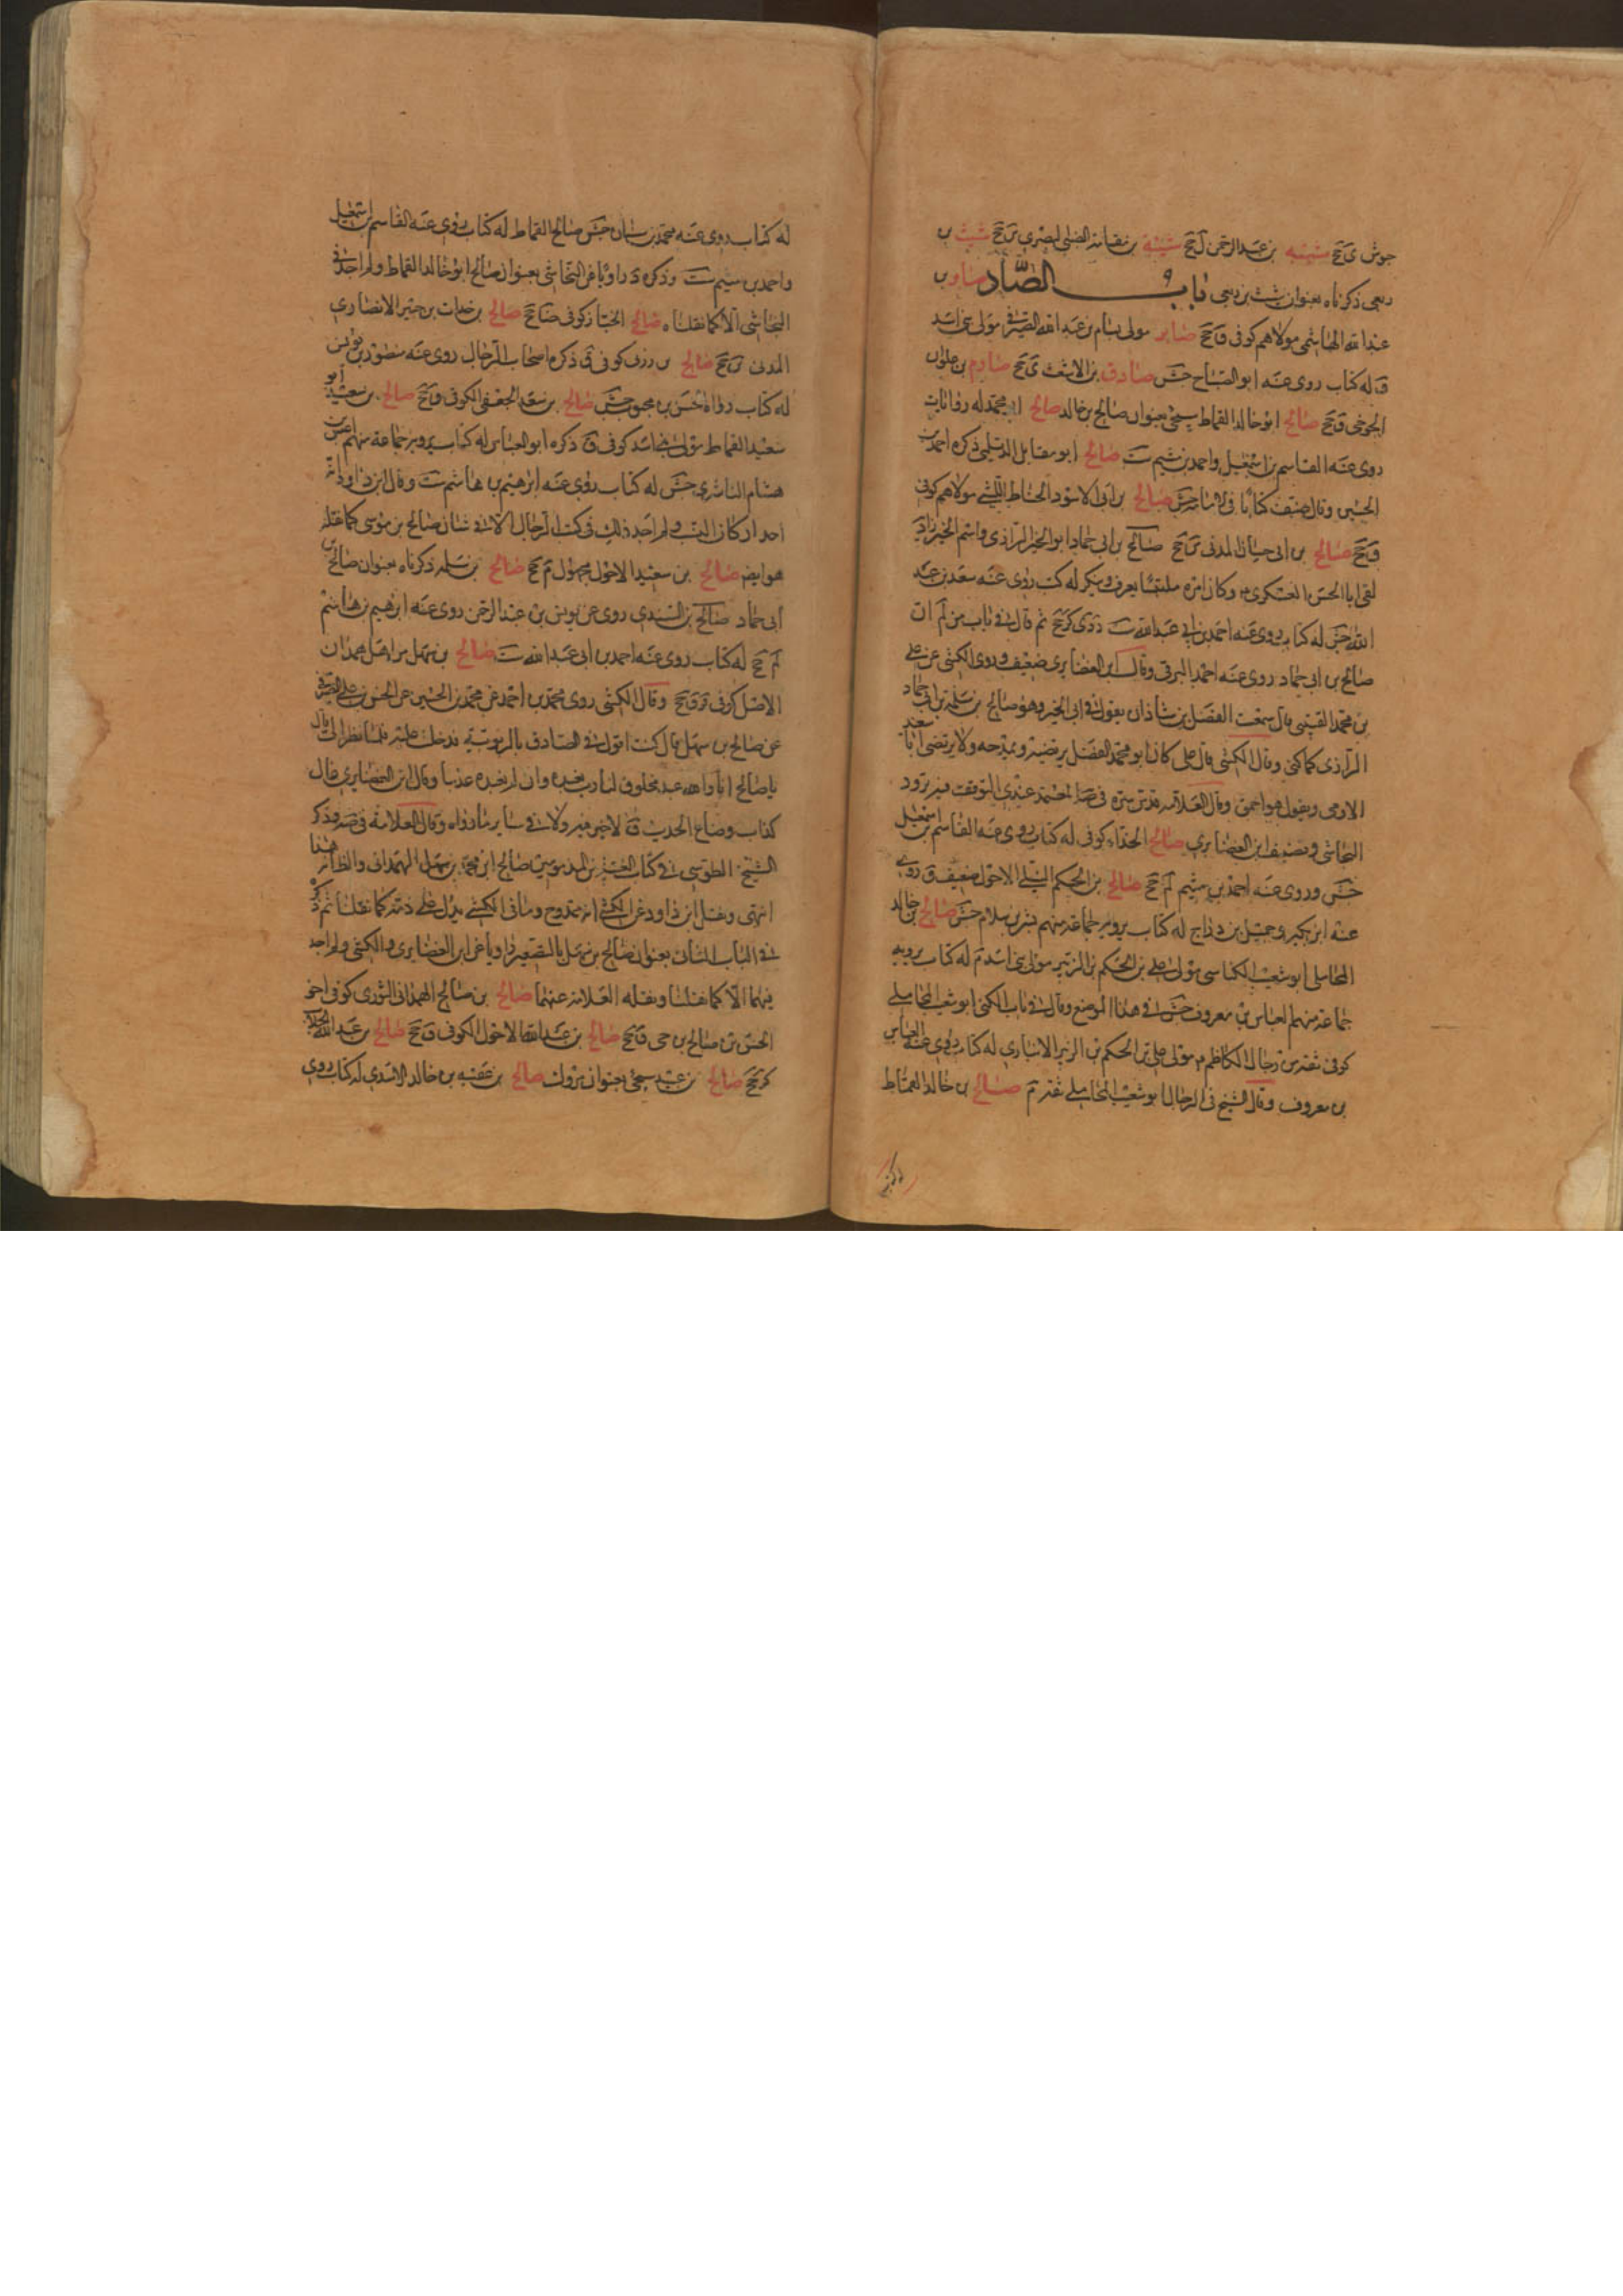 جوش ی جخ شیبه بن عبد الرحمن ل جخ شیبة بن نعامة الضبی البصری ین جخ شیث بن
ربعی ذکرناه بعنوان شبث بن ربعی باب الصاد صابر
عبد الله الهاشمی مولاهم کوفی ق جخ صابر مولی بسام بن عبد الله الصیرفی مولی بنی اسد
ق له کتاب روی عنه ابو الصباح جش صادق بن الاشعث ی جخ صارم بن علوان
الجوخی ق جخ صالح ابو خالد القماط سیجئ بعنوان صالح بن خالد صالح ابو محمد له روایات
روی عنه القاسم بن اسمعیل واحمد بن میثم ست صالح ابو مقاتل الدیلمی ذکره احمد بن
الحسین وقال صنف کتابا فی الامامة جش صالح بن ابی الاسود الحناط اللیثی مولاهم کوفی
ق جخ صالح بن ابی حسان المدنی ین جخ صالح بن ابی حماد ابو الخیر الرازی واسم ابی الخیر زاذویه
لقی ابا الحسن العسکری وکان امره ملتبسا یعرف وینکر له کتب روی عنه سعد بن عبد
الله جش له کتاب روی عنه احمد بن ابی عبد الله ست د دی کر جخ ثم قال فی باب من لم ان
صالح بن ابی حماد روی عنه احمد البرقی وقال ابن الغضایری ضعیف وروی الکشی عن علی
بن محمد القتیبی قال سمعت الفضل بن شاذان یقول فی ابی الخیر وهو صالح بن سلمة بن ابی حماد
الرازی کما کنی وقال الکشی قال علی کان ابو محمد الفضل یرتضیه ویمدحه ولا یرتضی ابا سعید
الادمی ویقول هو احمق وقال العلامة قدس سره فی صه المعتمد عندی التوقف فیه لتردد
النجاشی وتضعیف ابن الغضایری صالح الحذاء کوفی له کتاب روی عنه القاسم بن اسمعیل
جش وروی عنه احمد بن میثم لم جخ صالح بن الحکم النیلی الاحول ضعیف ق روی
عنه ابن بکیر وجمیل بن دراج له کتاب یرویه جماعة منهم بشر بن سلام جش صالح بن خالد
المحاملی ابو شعیب الکناسی مولی علی بن الحکم بن الزبیر مولی بنی اسد م له کتاب یرویه
جماعة منهم العباس بن معروف جش فی هذا الموضع وقال فی باب الکنی ابو شعیب المحاملی
کوفی ثقة من رجال الکاظم م مولی علی بن الحکم بن الزبیر الانباری له کتاب روی عنه العباس
بن معروف وقال الشیخ فی الرجال ابو شعیب المحاملی ثقة م صالح بن خالد القماط
له کتاب روی عنه محمد بن سنان جش صالح القماط له کتاب روی عنه القاسم بن اسمعیل
واحمد بن میثم ست وذکره د راویا عن النجاشی بعنوان صالح ابو خالد القماط ولم اجد فی
النجاشی الا کما نقلناه صالح الخباز کوفی ق جخ صالح بن خوات بن جبیر الانصاری
المدنی ین جخ صالح بن رزین کوفی ق ذکره اصحاب الرجال روی عنه منصور بن یونس
له کتاب رواه الحسن بن محبوب جش صالح بن سعد الجعفی الکوفی ق جخ صالح بن سعید ابو
سعید القماط مولی بنی اسد کوفی ق ذکره ابو العباس له کتاب یرویه جماعة منهم عبیس بن
هشام الناشری جش له کتاب روی عنه ابراهیم بن هاشم ست وقال ابن داود انه
احد ارکان النسب ولم اجد ذلک فی کتب الرجال الا فی شان صالح بن موسی کما نقله
هو ایضا صالح بن سعید الاحول مجهول م جخ صالح بن سلمه ذکرناه بعنوان صالح بن
ابی حماد صالح بن السندی روی عن یونس بن عبد الرحمن روی عنه ابراهیم بن هاشم
لم جخ له کتاب روی عنه احمد بن ابی عبد الله ست صالح بن سهل من اهل همدان
الاصل کوفی قر ق جخ وقال الکشی روی محمد بن احمد عن محمد بن الحسین عن الحسن بن علی الصیرفی
عن صالح بن سهل قال کنت اقول فی الصادق بالربوبیة فدخلت علیه فلما نظر الی قال
یا صالح انا والله عبد مخلوق لنا رب نعبده وان لم نعبده عذبنا وقال ابن الغضایری غال
کذاب وضاع الحدیث ق لا خیر فیه ولا فی سایر ما رواه وقال العلامة فی صه وذکر
الشیخ الطوسی فی کتاب الغیبة من المذمومین صالح ابن محمد بن سهل الهمدانی والظاهر انه هذا
انتهی ونقل ابن داود عن الکشی انه ممدوح وما فی الکشی یدل علی ذمه کما نقلنا ثم ذکره
فی الباب الثانی بعنوان صالح بن سهیل بالتصغیر راویا عن ابن الغضایری والکشی ولم اجد
فیهما الا کما نقلنا ونقله العلامة عنهما صالح بن صالح الهمدانی الثوری کوفی اخو
الحسن بن صالح بن حی ق جخ صالح بن عبد الله الاحول الکوفی ق جخ صالح بن عبد الله الجلاب
کر جخ صالح بن عبید سیجئ بعنوان متروک صالح بن عقبه بن خالد الاسدی له کتاب روی